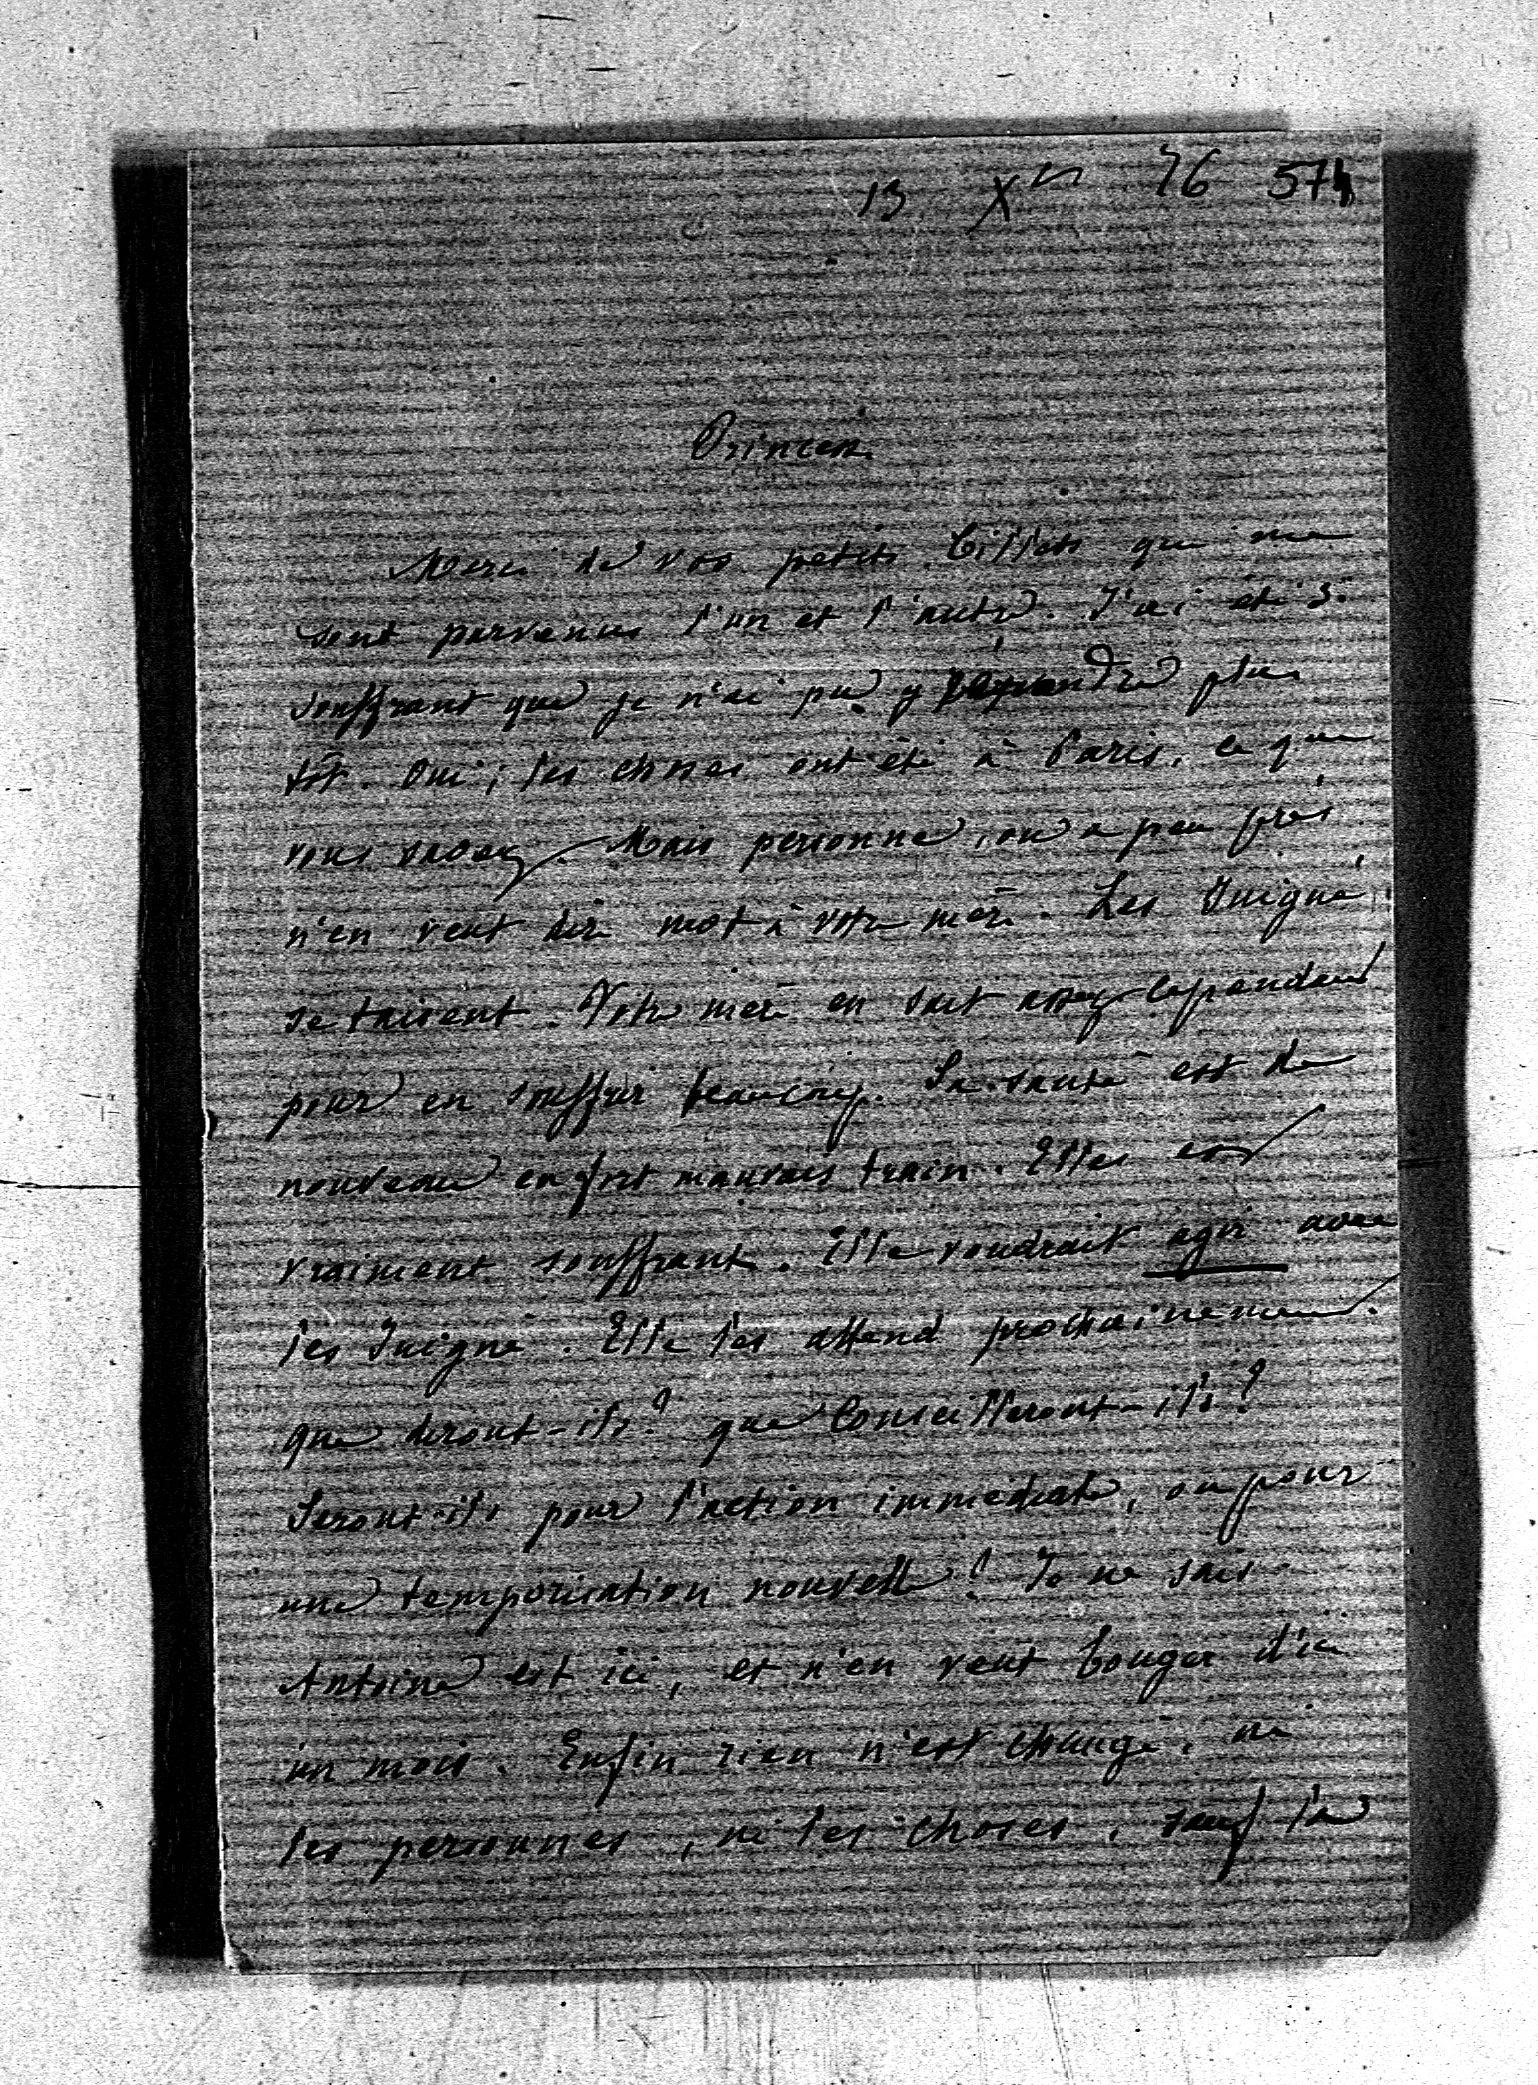 13 Xbre 76 574
Princesse
Merci de vos petits billets qui me
sont parvenus l'un et l'autre. J'ai été si
souffrant que je n'ai pu y répondre plus
tôt. Oui ; les choses ont été à Paris, ce que
vous savez. Mais personne, ou à peu près
n'en veut dire mot à votre mère. Les Juigné
se taisent. Votre mère en sait assez cependant
pour en souffrir beaucoup. Sa santé est de
nouveau en fort mauvais train. Elle est
vraiment souffrante. Elle voudrait agir avec
les Juigné. Elle les attend prochainement.
que diront-ils ? que conseilleront-ils ?
Seront-ils pour l'action immédiate, ou pour
une temporisation nouvelle ? Je ne sais
Antoine est ici, et n'en veut bouger d'ici
un mois. Enfin rien n'est changé, ni
les personnes, ni les choses, sauf la